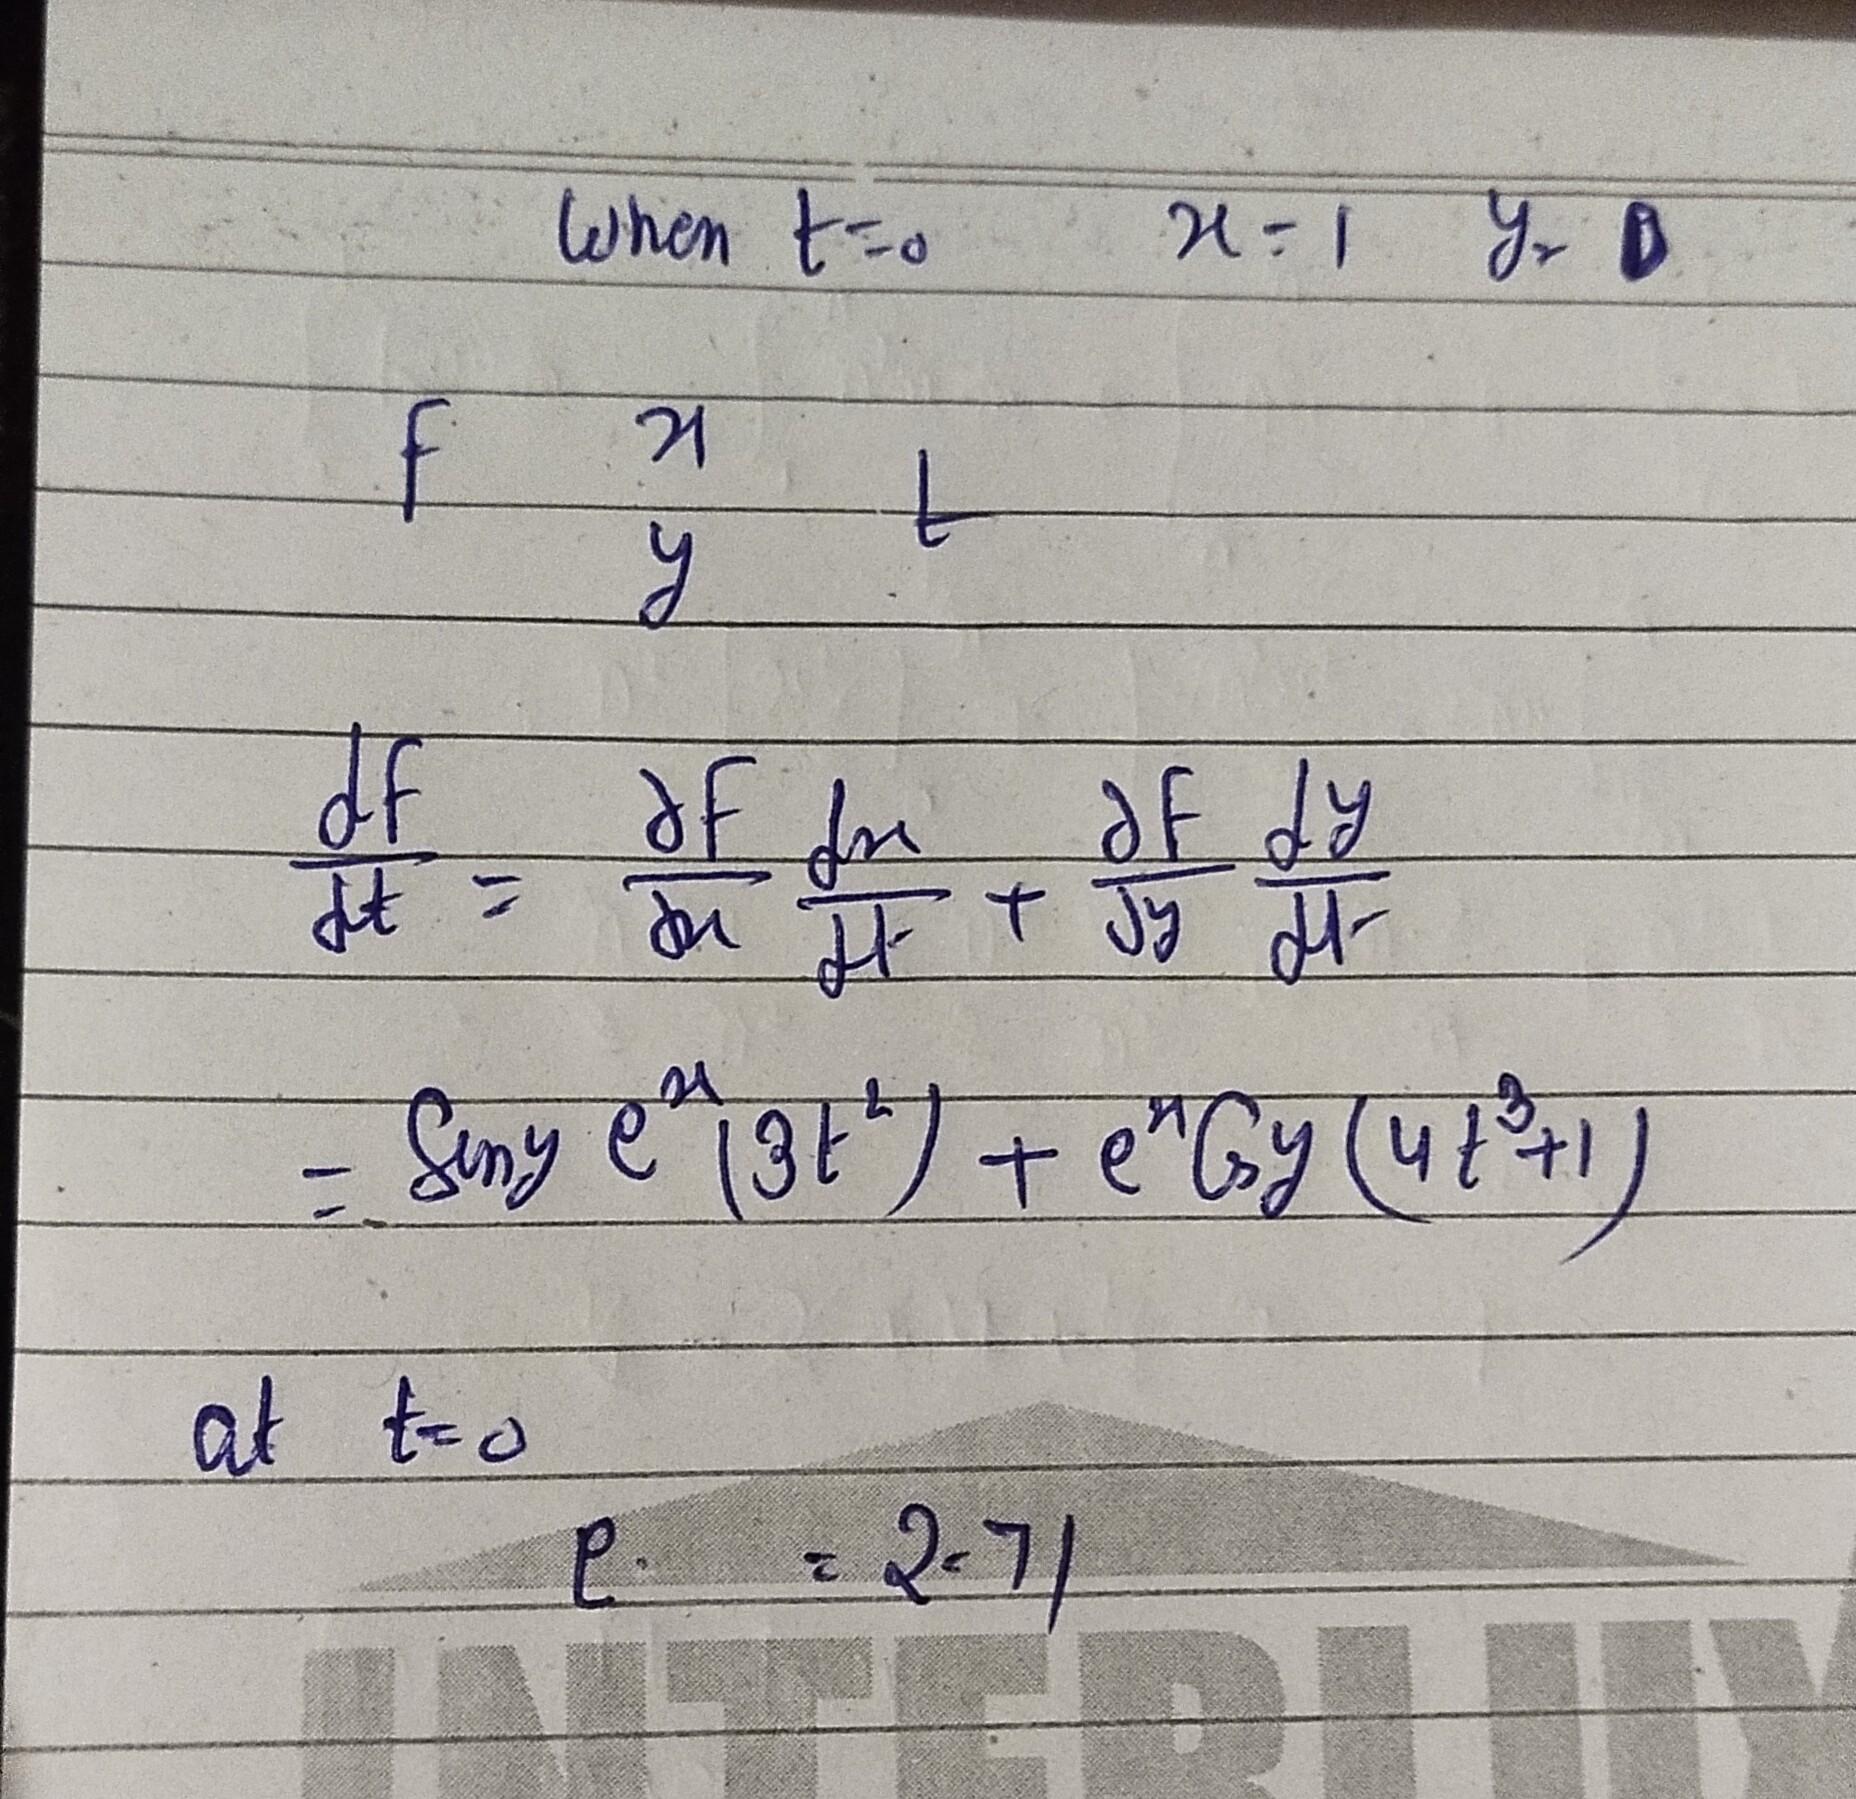 When t=0 x=1 y= 0
f x
y t
df/dt = ∂f/∂x dx/dt + ∂f/∂y dy/dt
= Siny e^x (3t^2) + e^x Cosy (4t^3+1)
at t=0
e. = 2.71
INTERLUX